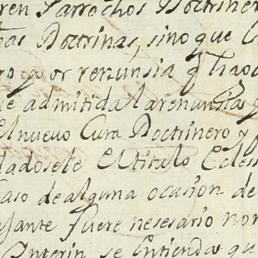 ren Parrochos Doctriner
has Doctrinas, sino que
or renunsia q
le admitida la renunsia q
El nuevo Cura Doctrinero y
dadosele El titulo Eccles
caso de alguna ocasion de
fuere nesesario nom
Interin se Entienda que